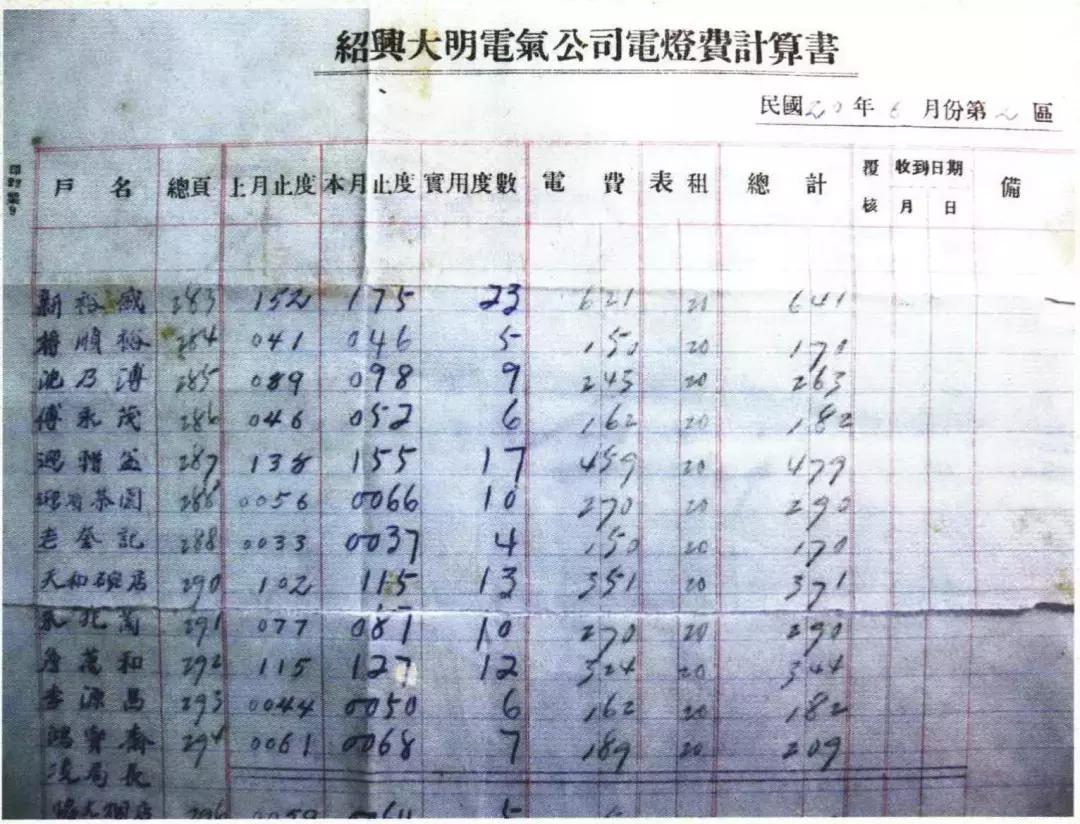 紹興大明電氣公司電燈費計算書
民國20年6月份第2區
戶名 總頁 上月止度 本月止度 實用度數 電費 表租 總計 覆核 收到日期 月 日 備
新裕盛 283 152 175 23 621 20 641
順裕 284 041 046 5 150 20 170
池乃溥 285 089 098 9 243 20 263
傅永茂 286 046 052 6 162 20 182
287 138 155 17 459 20 479
茶園 288 0056 0066 10 270 20 290
老奎記 288 0033 0037 4 150 20 170
天和碗店 290 102 115 13 351 20 371
291 077 081 10 270 20 290
萬和 292 115 127 12 324 20 344
李源昌 293 0044 0050 6 162 20 182
鴻寶齋 294 0061 0068 7 189 20 209
局長
296 0059